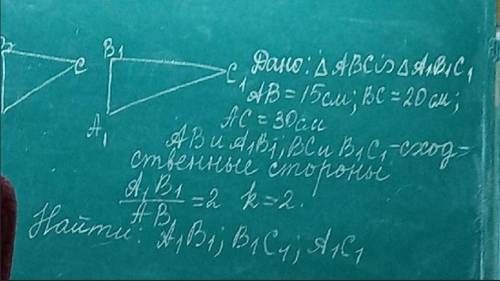 B
C
B₁
C₁
A₁
Дано: △ABC ∽ △A₁B₁C₁
AB = 15см; BC = 20см;
AC = 30см
AB и A₁B₁, BC и B₁C₁ - сход-
ственные стороны
A₁B₁/AB = 2 k = 2.
Найти: A₁B₁; B₁C₁; A₁C₁